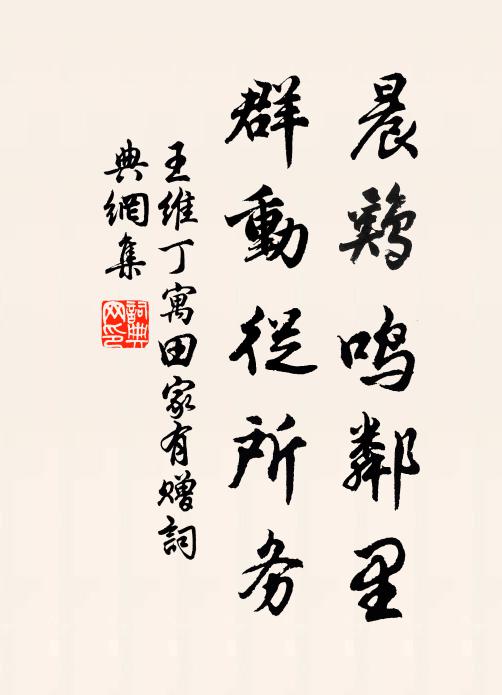 晨鷄鳴鄰里
群動從所务
王維丁寓田家有赠詞
典網集
詞典
网印